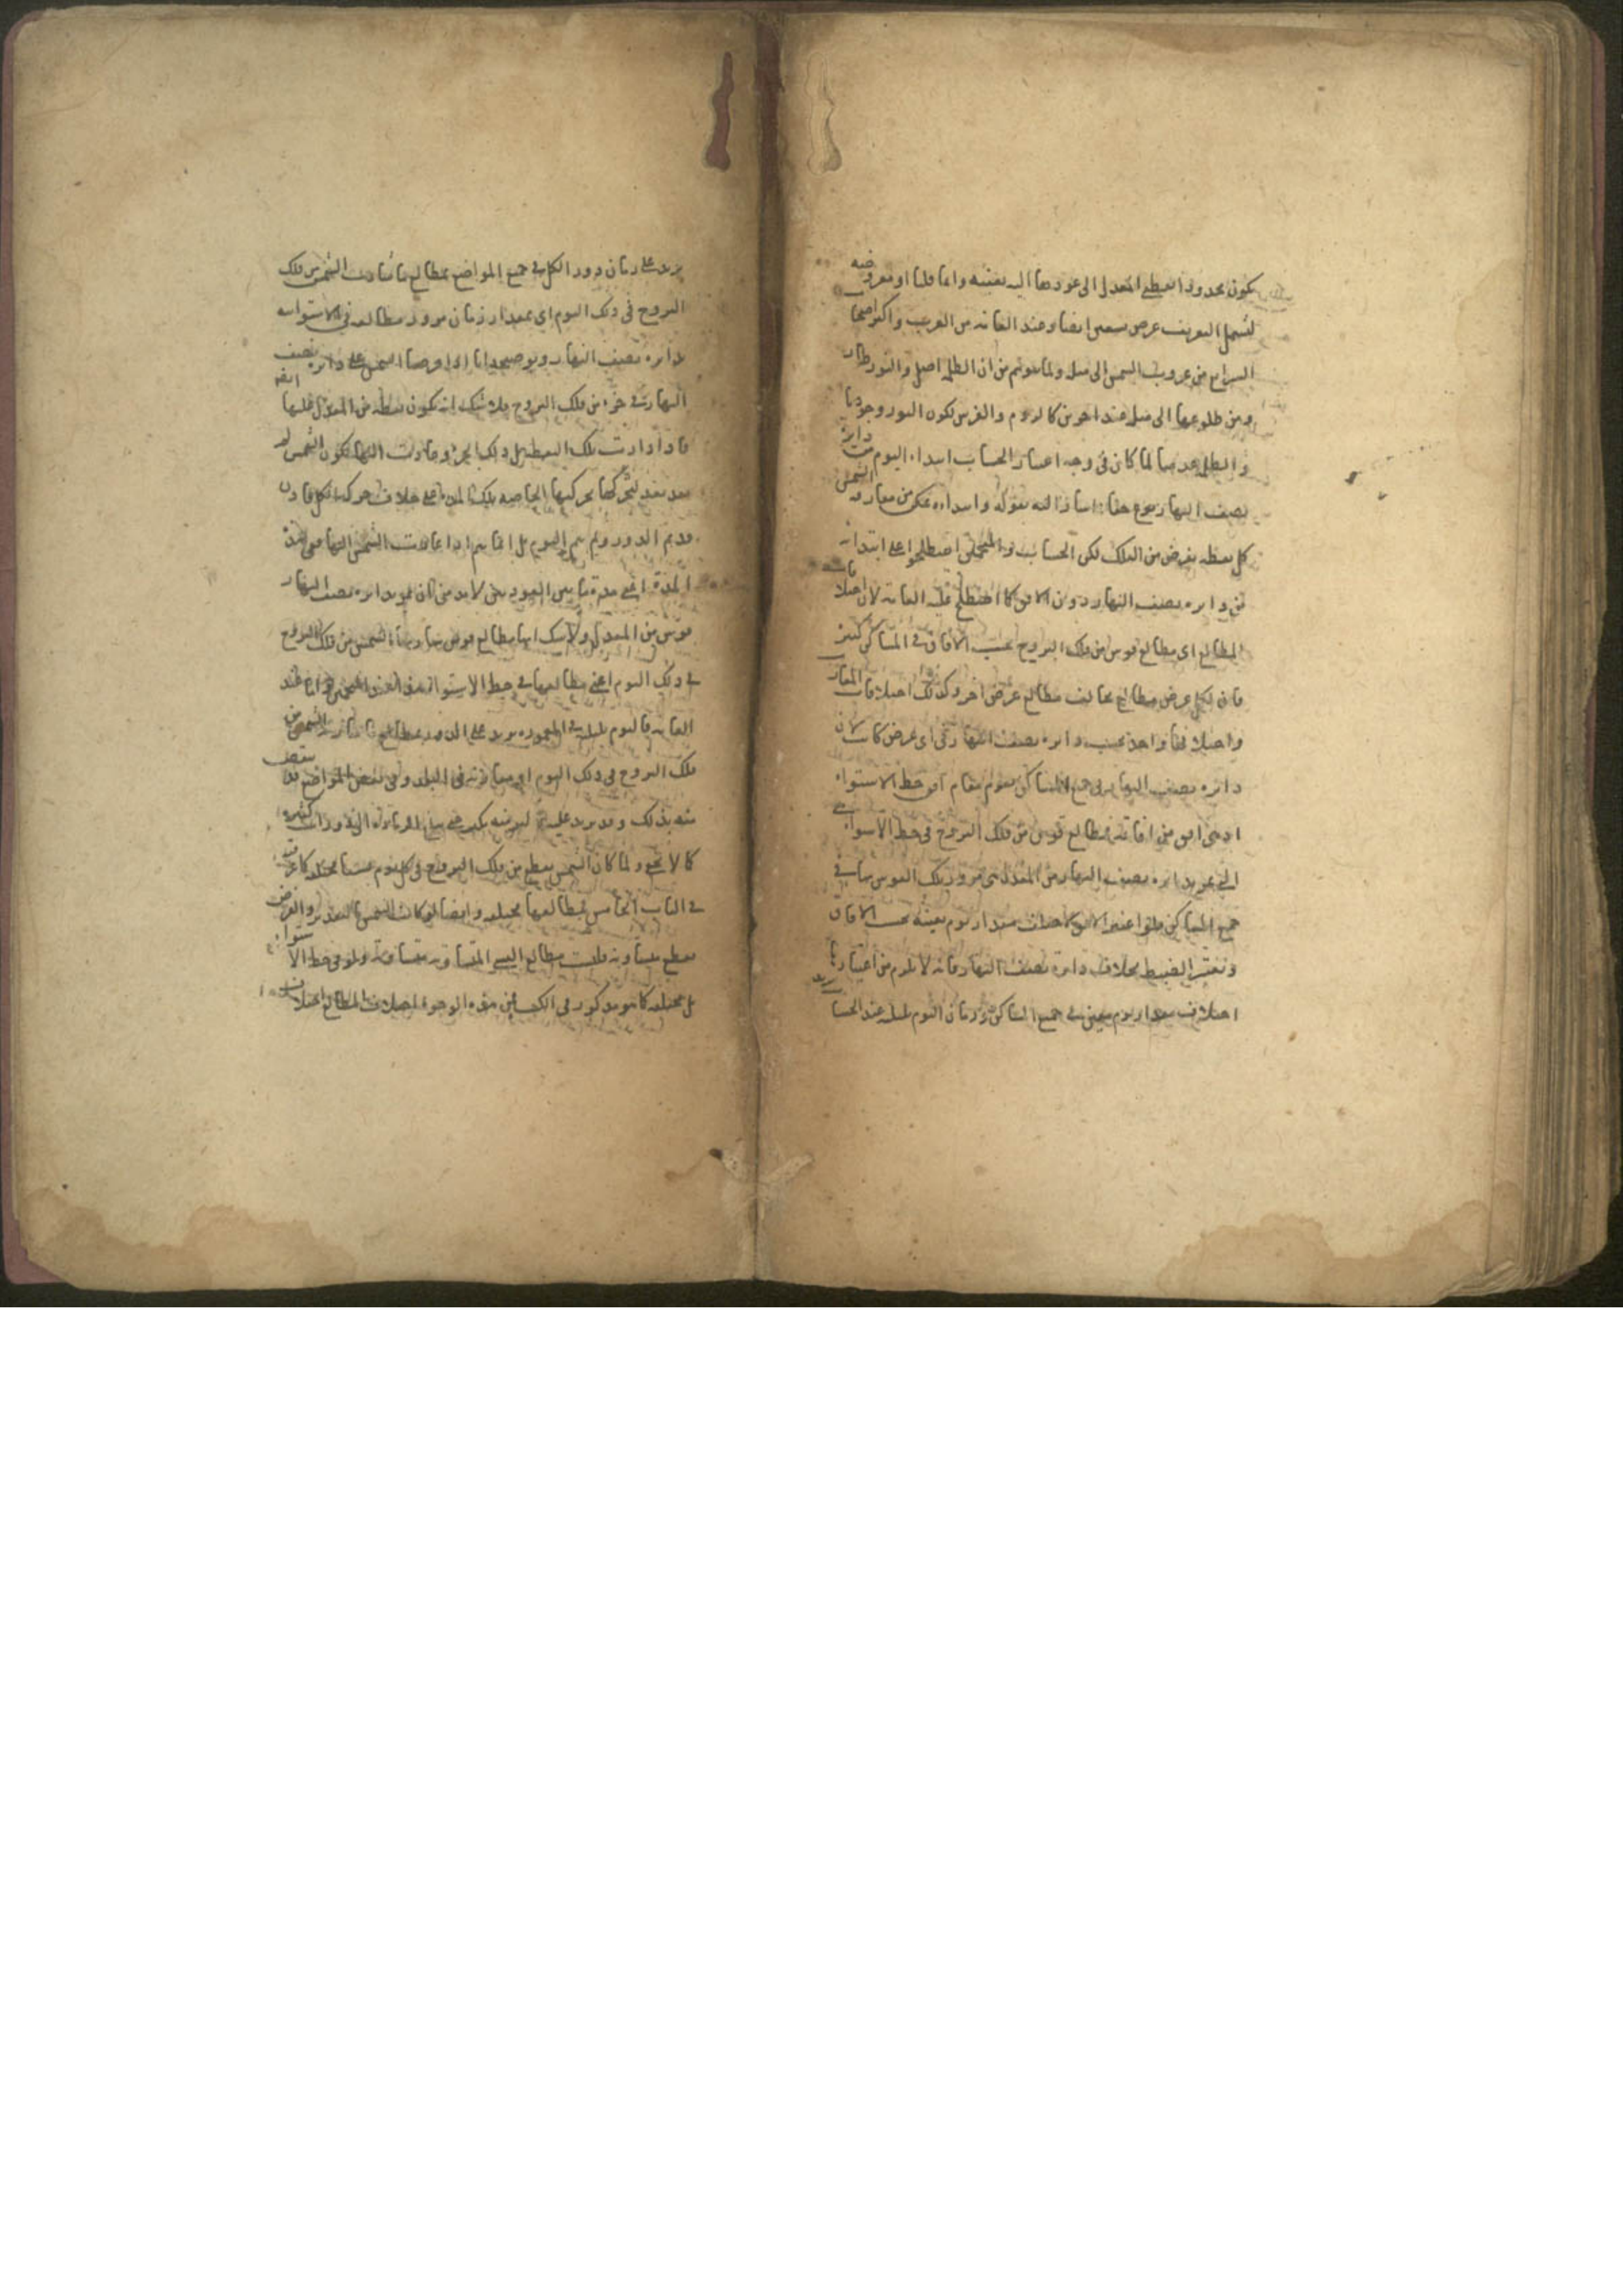 يكون محدودا نقطة المعدل الى عودها اليه بعينه وانما قلنا او مفروضه
ليشمل التعريف عرض تسعين ايضا وعند العامة من الغروب واكثر اصحاب
الشرايع من غروب الشمس الى مثله ولما يتوهم من ان الظلمة اصل والنور طار
ومن طلوعها الى مثله عند اخرين كالروم والفرس لكون النور وجوديا
والظلمة عدمها لما كان في وجه اعتبار الحساب ابتداء اليوم من دايرة
نصف النهار نوع خفاء اشار اليه بقوله وابتداءه يمكن من مفارقة الشمس
كل نقطة تفرض من الفلك لكن الحساب والمنجمين اصطلحوا على ابتدائه
من دايرة نصف النهار دون الافق كما اصطلح عليه العامة لان اختلافات
المطالع اى مطالع قوس من فلك البروج بحسب الافاق في المساكن كثيرة
فان لكل عرض مطالع يخالف مطالع عرض اخر وكذلك اختلافات المغارب
واختلافها واحد بحسب دايرة نصف النهار في اى عرض كانت لان
دايرة نصف النهار في جميع المساكن يقوم مقام افق خط الاستواء
اذ هى افق من افاقه فمطالع قوس من فلك البروج في خط الاستواء هى
التي تمر بدايرة نصف النهار من المعدل مع مرور تلك القوس بها في
جميع المساكن فلو اعتبر الافق لاختلف مقدار يوم بعينه بحسب الافاق
وتعسر الضبط بخلاف دايرة نصف النهار فانه لا يلزم من اعتبارها
اختلاف مقدار يوم معين في جميع المساكن وزمان اليوم بليلته عند الحساب
يزيد على زمان دور الكل في جميع المواضع بمطالع ما سارت الشمس من فلك
البروج في ذلك اليوم اى بمقدار زمان مرور مطالعه في الاستواء
بدايرة نصف النهار وتوضيحه انا اذا فرضنا الشمس على دايرة نصف
النهار في جزء من فلك البروج فلا شك انه يكون نقطة من المعدل عليها ايضا
فاذا دارت تلك النقطة بل ذلك الجزء وعادت اليها لم يكن الشمس
بعد لتحركها بحركتها الخاصة تلك المدة على خلاف حركة الكل فاذن
قد تم الدور ولم يتم اليوم بل انما يتم اذا عادت الشمس اليها ففى هذه
المدة اعنى مدة ما بين العودتين لابد من ان يمر بدايرة نصف النهار
قوس من المعدل ولا شك انها مطالع قوس سارتها الشمس من فلك البروج
في ذلك اليوم اعنى مطالعها في خط الاستواء هذا عند المنجمين واما عند
العامة فاليوم بليلته في المعمورة يزيد على الدور بمطالع ما سارته الشمس من
فلك البروج في ذلك اليوم اى مطالعه في البلد وفي بعض المواضع قد ينقص
منه بذلك وقد يزيد عليه
كما لا يخفى ولما كان الشمس يقطع من فلك البروج في كل يوم قسيا مختلفة كما عرفت
في الباب الخامس فمطالعها مختلفة وايضا لو كانت الشمس بالتقدير والفرض
يقطع متساوية فليست مطالع القسى المتساوية متساوية ولو في خط الاستواء
بل مختلفة كما هو مذكور في الكتاب فمن هذه الوجوه اختلاف المطالع